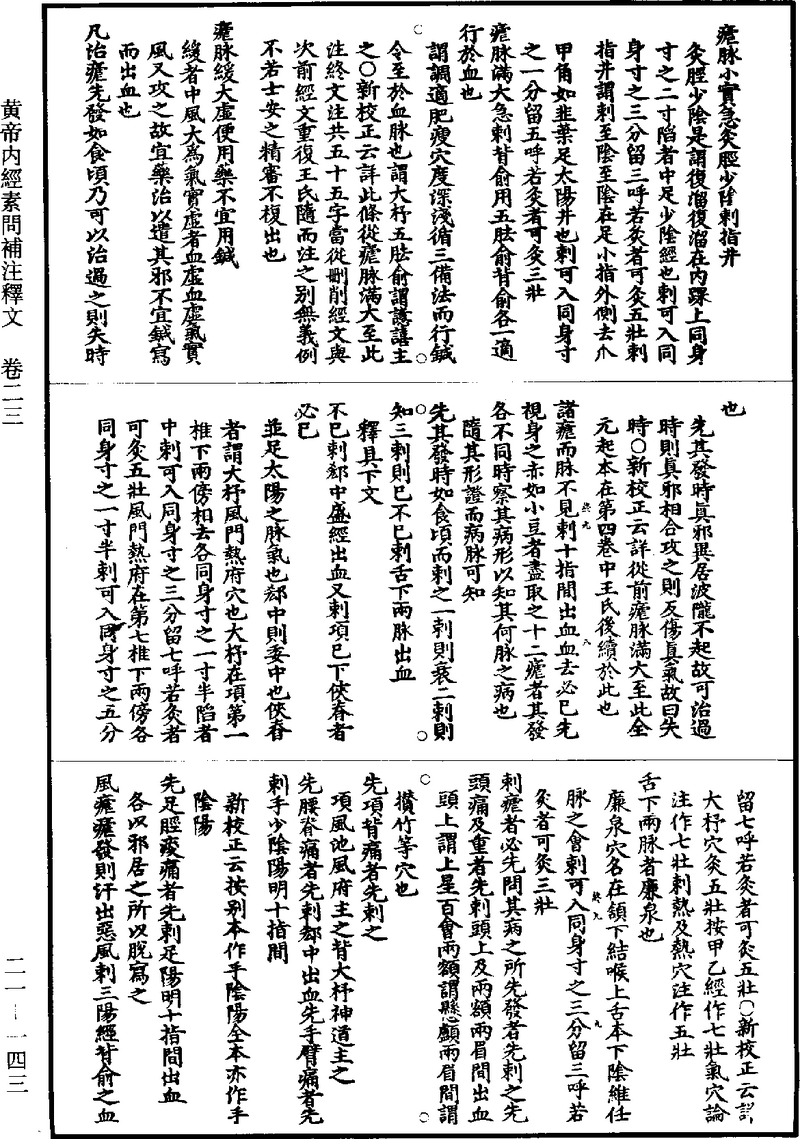 瘧脉小實急灸脛少陰刺指井
灸脛少陰是謂復溜復溜在內踝上同身
寸之二寸陷者中足少陰經也刺可入同
身寸之三分留三呼若灸者可灸五壯刺
指井謂刺至陰至陰在足小指外側去爪
甲角如韭葉足太陽井也刺可入同身寸
之一分留五呼若灸者可灸三壯
瘧脉滿大急刺背俞用五胠俞背俞各一適
行於血也
謂調適肥瘦穴度深淺循三備法而行鍼
令至於血脉也謂大杼五胠俞謂譩譆主
之○新校正云詳此條從瘧脉滿大至此
注終文注共五十五字當從刪削經文與
次前經文重復王氏隨而注之别無義例
不若士安之精審不複出也
瘧脉緩大虛便用藥不宜用鍼
緩者中風大為氣實虛者血虛血虛氣實
風又攻之故宜藥治以遣其邪不宜鍼寫
而出血也
凡治瘧先發如食頃乃可以治過之則失時
也
先其發時真邪異居波隴不起故可治過
時則真邪相合攻之則反傷真氣故曰失
時○新校正云詳從前瘧脉滿大至此全
元起本在第四卷中王氏後續於此也
諸瘧而脉不見刺十指間出血血去必已先
視身之赤如小豆者盡取之十二瘧者其發
各不同時察其病形以知其何脉之病也
隨其形證而病脉可知
先其發時如食頃而刺之一刺則衰二刺則
知三刺則已不已刺舌下兩脉出血
釋具下文
不已刺郄中盛經出血又刺項已下俠脊者
必已
並足太陽之脉氣也郄中則委中也俠脊
者謂大杼風門熱府穴也大杼在項第一
椎下兩傍相去各同身寸之一寸半陷者
中刺可入同身寸之三分留七呼若灸者
可灸五壯風門熱府在第七椎下兩傍各
同身寸之一寸半刺可入同身寸之五分
留七呼若灸者可灸五壯○新校正云詳
大杼穴灸五壯按甲乙經作七壯氣穴論
注作七壯刺熱及熱穴注作五壯
舌下兩脉者廉泉也
廉泉穴名在頷下結喉上舌本下陰維任
脉之會刺可入同身寸之三分留三呼若
灸者可灸三壯
刺瘧者必先問其病之所先發者先刺之先
頭痛及重者先刺頭上及兩額兩眉間出血
頭上謂上星百會兩額謂懸顱兩眉間謂
攢竹等穴也
先項背痛者先刺之
項風池風府主之背大杼神道主之
先腰脊痛者先刺郄中出血先手臂痛者先
刺手少陰陽明十指間
新校正云按别本作手陰陽全本亦作手
陰陽
先足脛痠痛者先刺足陽明十指間出血
各以邪居之所以脫寫之
風瘧瘧發則汗出惡風刺三陽經背俞之血
黄帝内經素問補注釋文　卷二三
二一—一四三